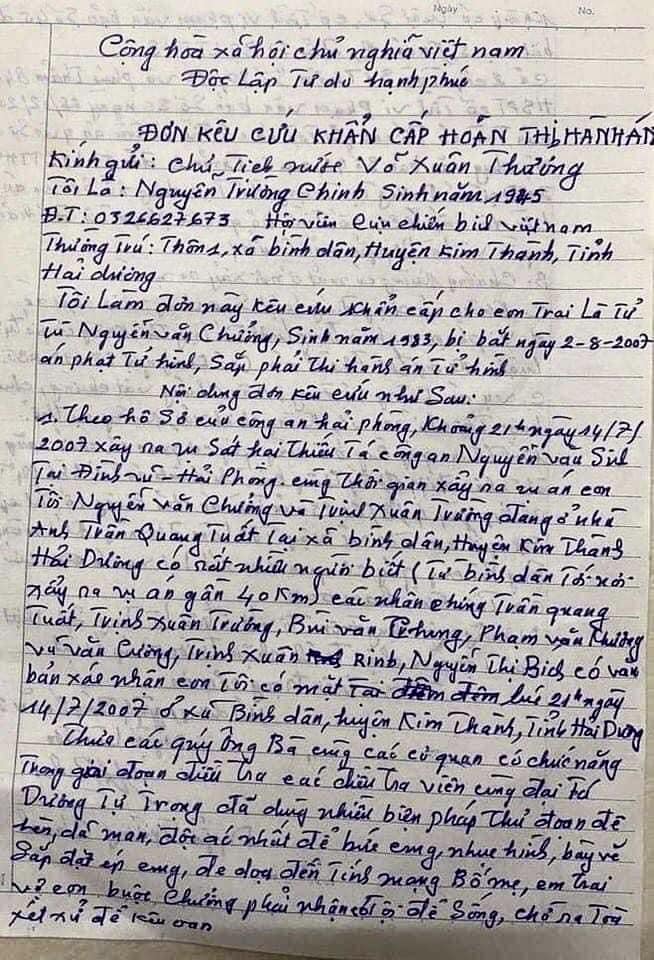 Ngày No.
Cộng hoà xã hội chủ nghĩa việt nam
Độc Lập Tự do hạnh phúc
ĐƠN KÊU CỨU KHẨN CẤP HOÃN THI HÀNH ÁN
Kính gửi: Chủ Tịch nước Võ Xuân Thưởng
Tôi Là: Nguyễn Trường Chinh Sinh năm 1945
Đ.T: 0326627673 Hội viên Cựu chiến binh việt nam
Thường Trú: Thôn 1, xã bình dân, Huyện Kim Thành, Tỉnh
Hải dương
Tôi Làm đơn này kêu cứu khẩn cấp cho con Trai Là Tử
Tù Nguyễn văn Chưởng, Sinh năm 1983, bị bắt ngày 2-8-2007
án phạt Tử hình, Sắp phải thi hành án Tử hình
Nội dung đơn kêu cứu như Sau:
1. Theo hồ Sơ của công an hải phòng, Khoảng 21h ngày 14/7/
2007 xảy ra vụ Sát hại Thiếu Tá công an Nguyễn văn Sinh
Tại Đình vũ - Hải Phòng. cùng Thời gian xảy ra vụ án con
Tôi Nguyễn văn Chưởng và Trịnh Xuân Trường đang ở nhà
Anh Trần Quang Tuất Tại xã bình dân, Huyện Kim Thành
Hải Dương có rất nhiều người biết (Từ bình dân Tới nơi
xảy ra vụ án gần 40 Km) các nhân chứng Trần quang
Tuất, Trịnh Xuân Trường, Bùi văn Chung, Phạm văn
vũ văn Cường, Trịnh Xuân Rinh, Nguyễn Thị Bích có văn
bản xác nhận con Tôi có mặt Tại đêm lúc 21h ngày
14/7/2007 ở xã Bình dân, huyện Kim Thành, Tỉnh Hải Dương
Thưa các quý Ông Bà cùng các cơ quan có chức năng
Trong giai đoạn điều tra các điều tra viên cùng đại Tá
Dương Tự Trọng đã dùng nhiều biện pháp Thủ đoạn đê
hèn, dã man, độc ác nhất để bức cung, nhục hình, bày vẽ
Sắp đặt ép cung, đe doạ đến Tính mạng Bố mẹ, em trai
vợ con buộc Chưởng phải nhận Tội để Sống, chờ ra Toà
xét xử để kêu oan